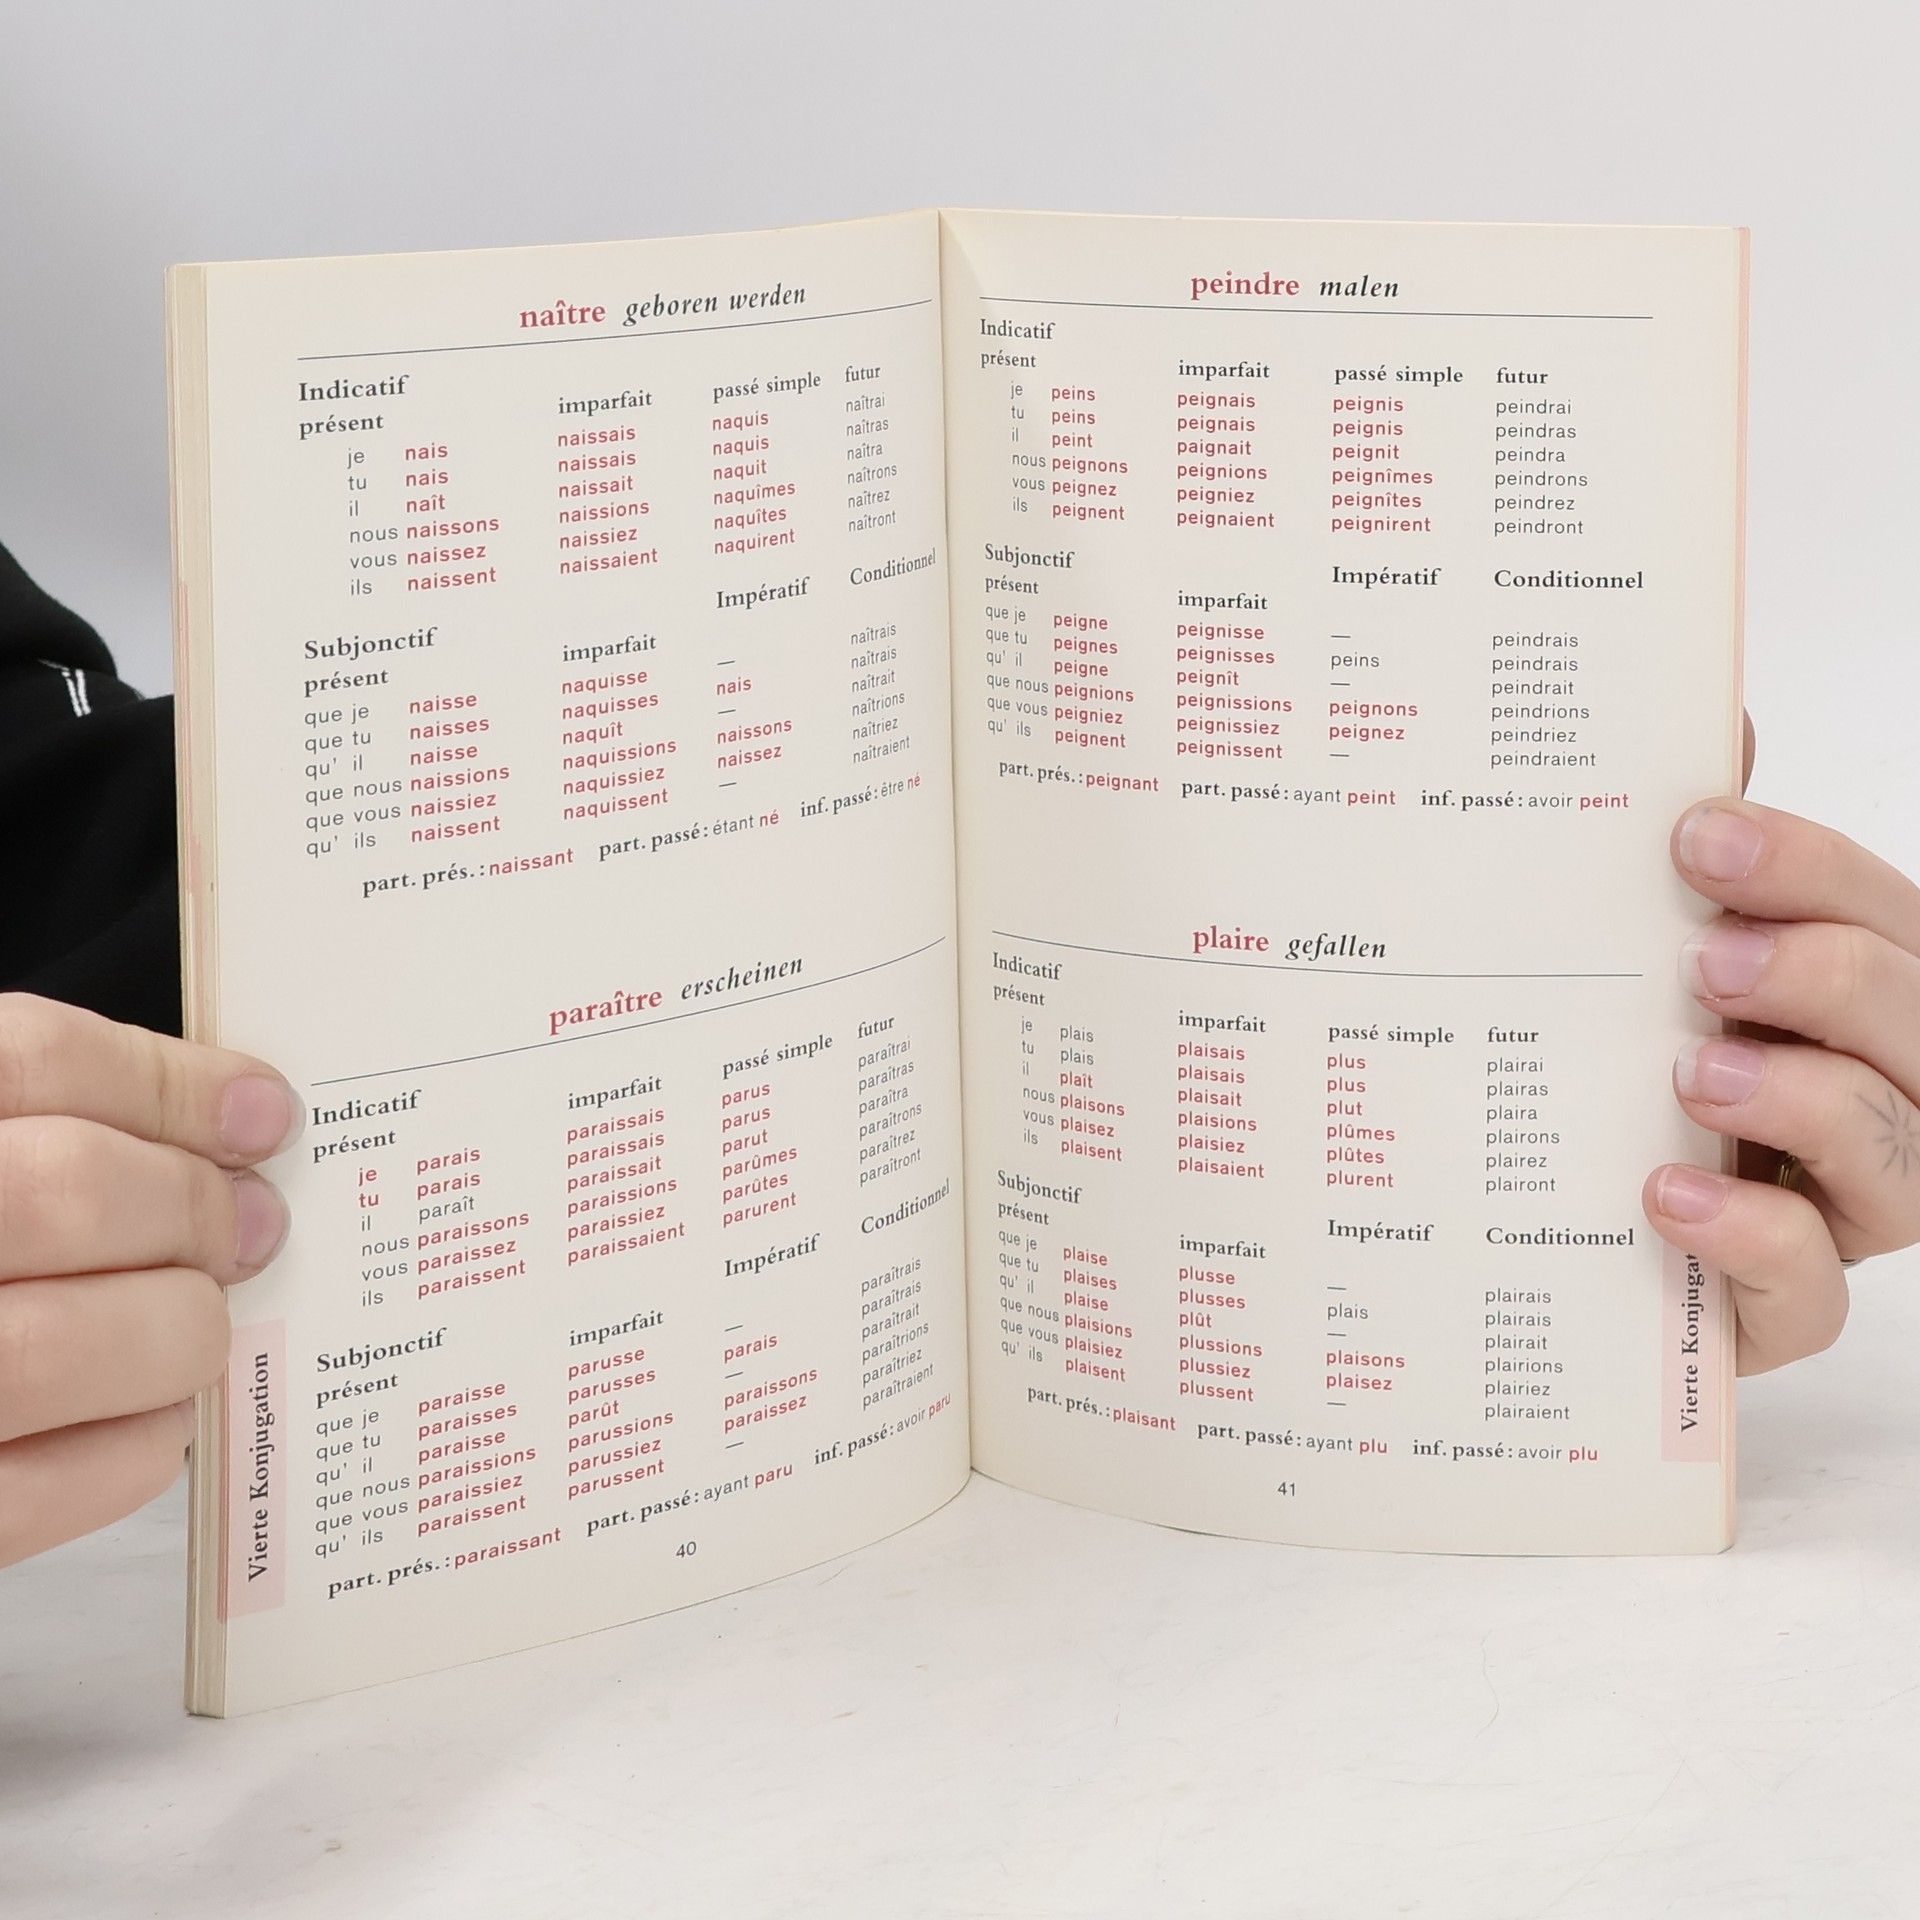 naître geboren werden
Indicatif
présent imparfait passé simple futur
je nais naissais naquis naîtrai
tu nais naissais naquis naîtras
il naît naissait naquit naîtra
nous naissons naissions naquîmes naîtrons
vous naissez naissiez naquîtes naîtrez
ils naissent naissaient naquirent naîtront
Subjonctif Impératif Conditionnel
présent imparfait
que je naisse naquisse — naîtrais
que tu naisses naquisses nais naîtrais
qu' il naisse naquît — naîtrait
que nous naissions naquissions naissons naîtrions
que vous naissiez naquissiez naissez naîtriez
qu' ils naissent naquissent — naîtraient
part. prés.: naissant part. passé: étant né inf. passé: être né
paraître erscheinen
Indicatif
présent imparfait passé simple futur
je parais paraissais parus paraîtrai
tu parais paraissais parus paraîtras
il paraît paraissait parut paraîtra
nous paraissons paraissions parûmes paraîtrons
vous paraissez paraissiez parûtes paraîtrez
ils paraissent paraissaient parurent paraîtront
Subjonctif Impératif Conditionnel
présent imparfait
que je paraisse parusse — paraîtrais
que tu paraisses parusses parais paraîtrais
qu' il paraisse parût — paraîtrait
que nous paraissions parussions paraissons paraîtrions
que vous paraissiez parussiez paraissez paraîtriez
qu' ils paraissent parussent — paraîtraient
part. prés.: paraissant part. passé: ayant paru inf. passé: avoir paru
40
Vierte Konjugation
peindre malen
Indicatif
présent imparfait passé simple futur
je peins peignais peignis peindrai
tu peins peignais peignis peindras
il peint paignait peignit peindra
nous peignons peignions peignîmes peindrons
vous peignez peigniez peignîtes peindrez
ils peignent peignaient peignirent peindront
Subjonctif Impératif Conditionnel
présent imparfait
que je peigne peignisse — peindrais
que tu peignes peignisses peins peindrais
qu' il peigne peignît — peindrait
que nous peignions peignissions peignons peindrions
que vous peigniez peignissiez peignez peindriez
qu' ils peignent peignissent — peindraient
part. prés.: peignant part. passé: ayant peint inf. passé: avoir peint
plaire gefallen
Indicatif
présent imparfait passé simple futur
je plais plaisais plus plairai
tu plais plaisais plus plairas
il plaît plaisait plut plaira
nous plaisons plaisions plûmes plairons
vous plaisez plaisiez plûtes plairez
ils plaisent plaisaient plurent plairont
Subjonctif Impératif Conditionnel
présent imparfait
que je plaise plusse — plairais
que tu plaises plusses plais plairais
qu' il plaise plût — plairait
que nous plaisions plussions plaisons plairions
que vous plaisiez plussiez plaisez plairiez
qu' ils plaisent plussent — plairaient
part. prés.: plaisant part. passé: ayant plu inf. passé: avoir plu
41
Vierte Konjugat